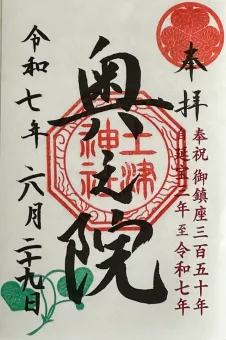 奉拝
奉祝 御鎮座三百五十年
自延宝三年至令和七年
奥之院
土津神社
令和七年 六月二十九日